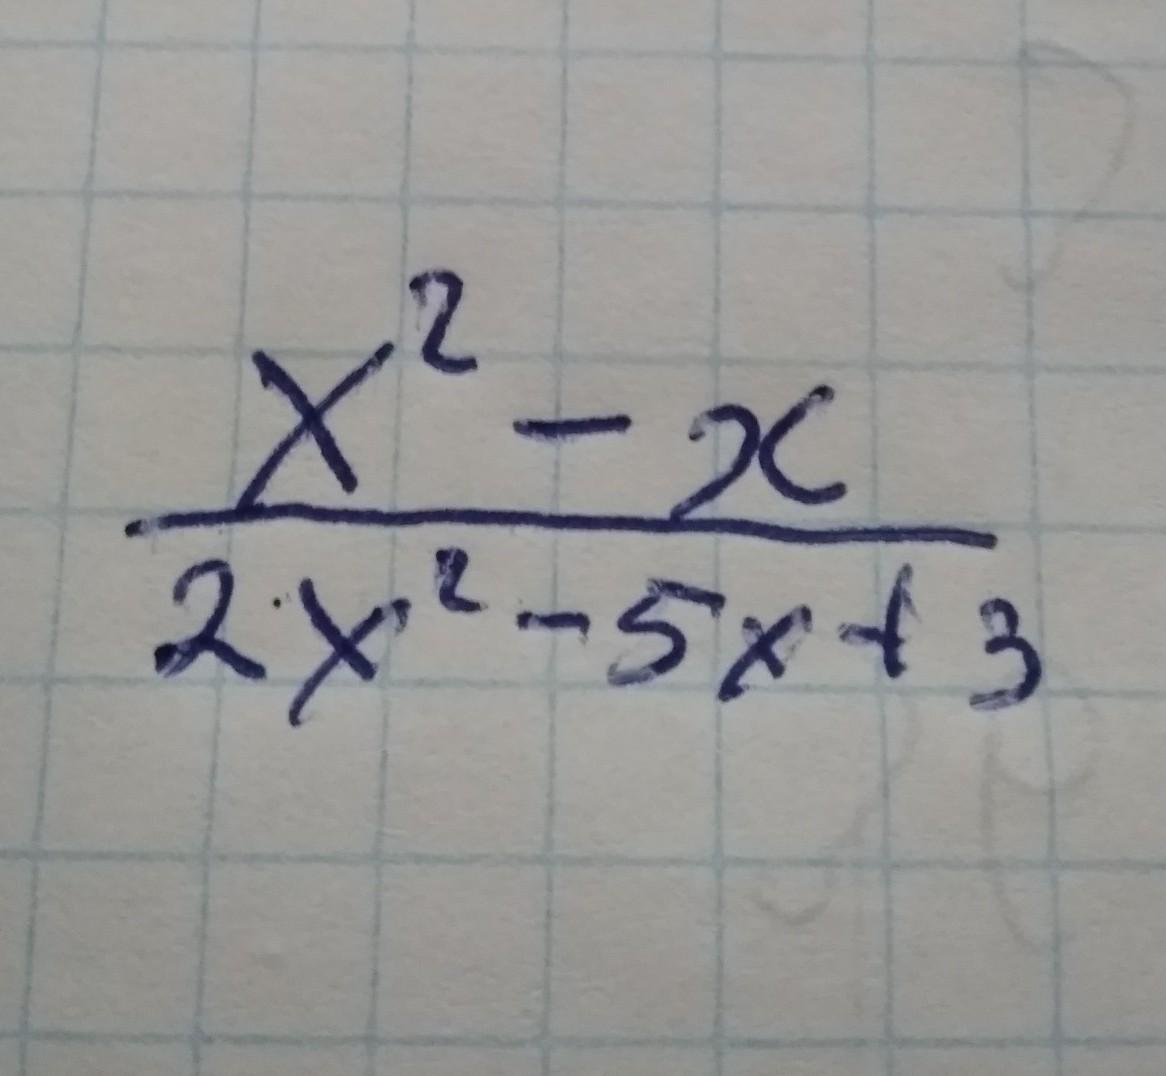 x² - x
2x² - 5x + 3